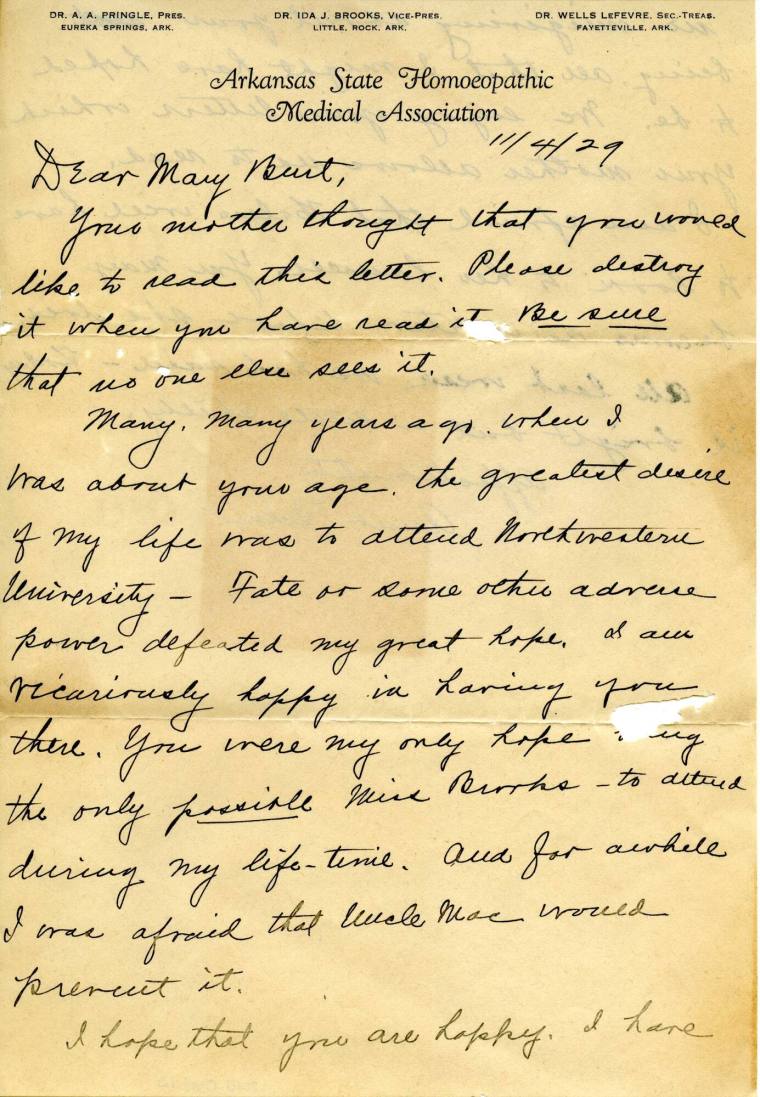 DR. A. A. PRINGLE, PRES.
EUREKA SPRINGS, ARK.
DR. IDA J. BROOKS, VICE-PRES.
LITTLE, ROCK, ARK.
DR. WELLS LEFEVRE, SEC.-TREAS.
FAYETTEVILLE, ARK.
Arkansas State Homoeopathic
Medical Association
11/4/29
Dear Mary Burt,
Your mother thought that you would
like to read this letter. Please destroy
it when you have read it Be sure
that no one else sees it.
Many, many years ago, when I
was about your age, the greatest desire
of my life was to attend Northwestern
University – Fate or some other adverse
power defeated my great hope. I am
vicariously happy in having you
there. You were my only hope
the only possible Miss Brooks – to attend
during my life-time. And for awhile
I was afraid that Uncle Mac would
prevent it.
I hope that you are happy. I have